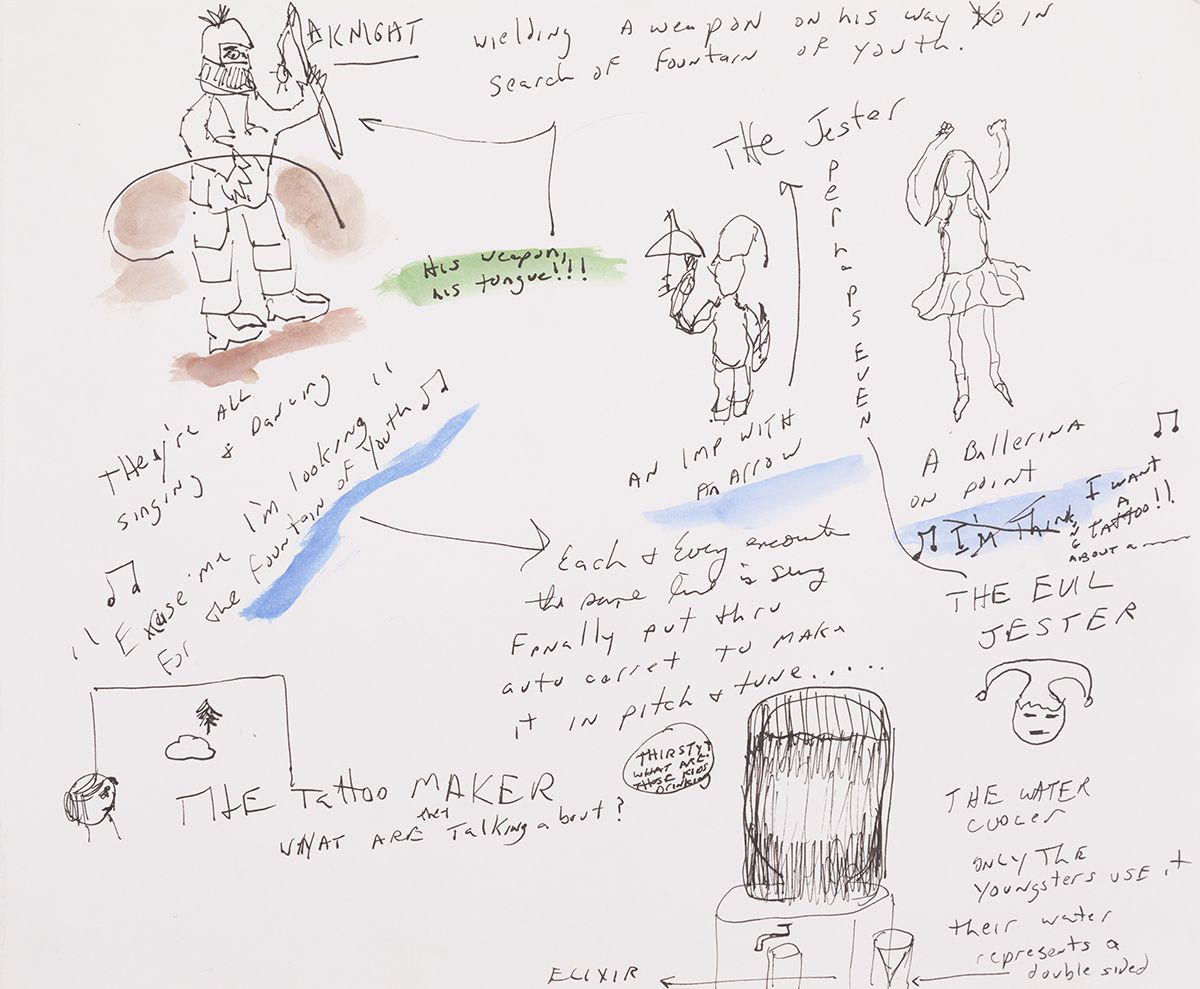 A KNIGHT wielding A weapon on his way in
search of Fountain of Youth.
His weapon,
his tongue!!!
THe Jester
perhaps even
THE EVIL
JESTER
AN IMP WITH
An ARROW
A Ballerina
on point
I'M Think I WANT
A
TATTOO!!
ABOUT A
They're ALL
singing & Dancing
" Excuse me I'm looking "
For the Fountain of Youth
Each & Every encounte
the same line is sung
Finally put thru
auto corret to make
it in pitch & tune.....
THE Tattoo MAKER
WHAT ARE they Talking about?
THIRSTY?
WHAT ARE
THOSE KIDS
DRINKING
THE WATER
COOLER
ONLY THE
Youngsters USE it
their water
represents a
double sided
ELIXIR